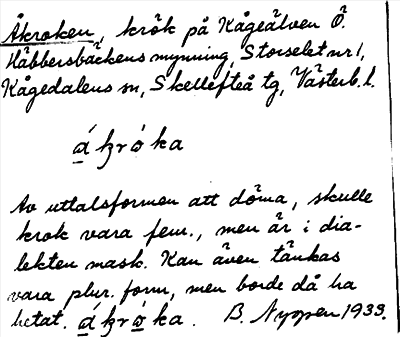 Åkroken, krök på Kågeälven Ö.
Häbbersbäckens mynning, Storselet nr 1,
Kågedalens sn, Skellefteå tg, Västerb. l.
á̱ kr ó̱ ka
Av uttalsformen att döma, skulle
krok vara fem., men är i dia-
lekten mask. Kan även tänkas
vara plur. form, men borde då ha
hetat. a̱̍ kr o̱̍ ka. B. Nyppen 1933.